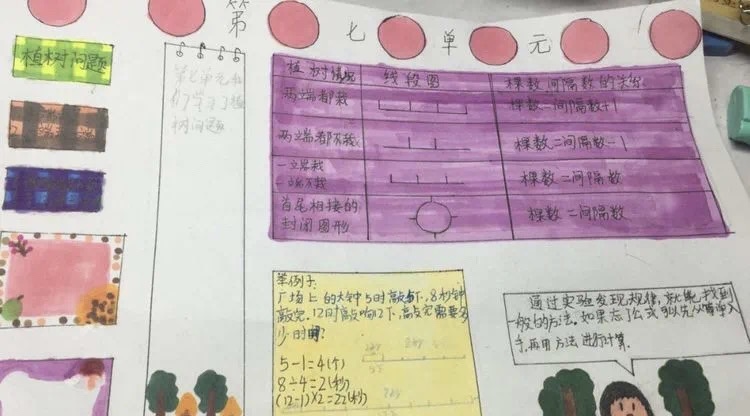 第七单元
植树问题
第七单元我
们学习了植
树问题
植树情况 线段图 棵数间隔数的关系
两端都栽 棵数=间隔数+1
两端都不栽 棵数=间隔数-1
一端栽
一端不栽 棵数=间隔数
首尾相接的
封闭图形 棵数=间隔数
举例子:
广场上的大钟5时敲5下,8秒钟
敲完。12时敲响12下,敲完需要多
少时间?
5-1=4(个)
8÷4=2(秒)
(12-1)×2=22(秒)
通过实验发现规律,就能找到
一般的方法。如果忘了公式可以先从简单入
手,再用方法进行计算.